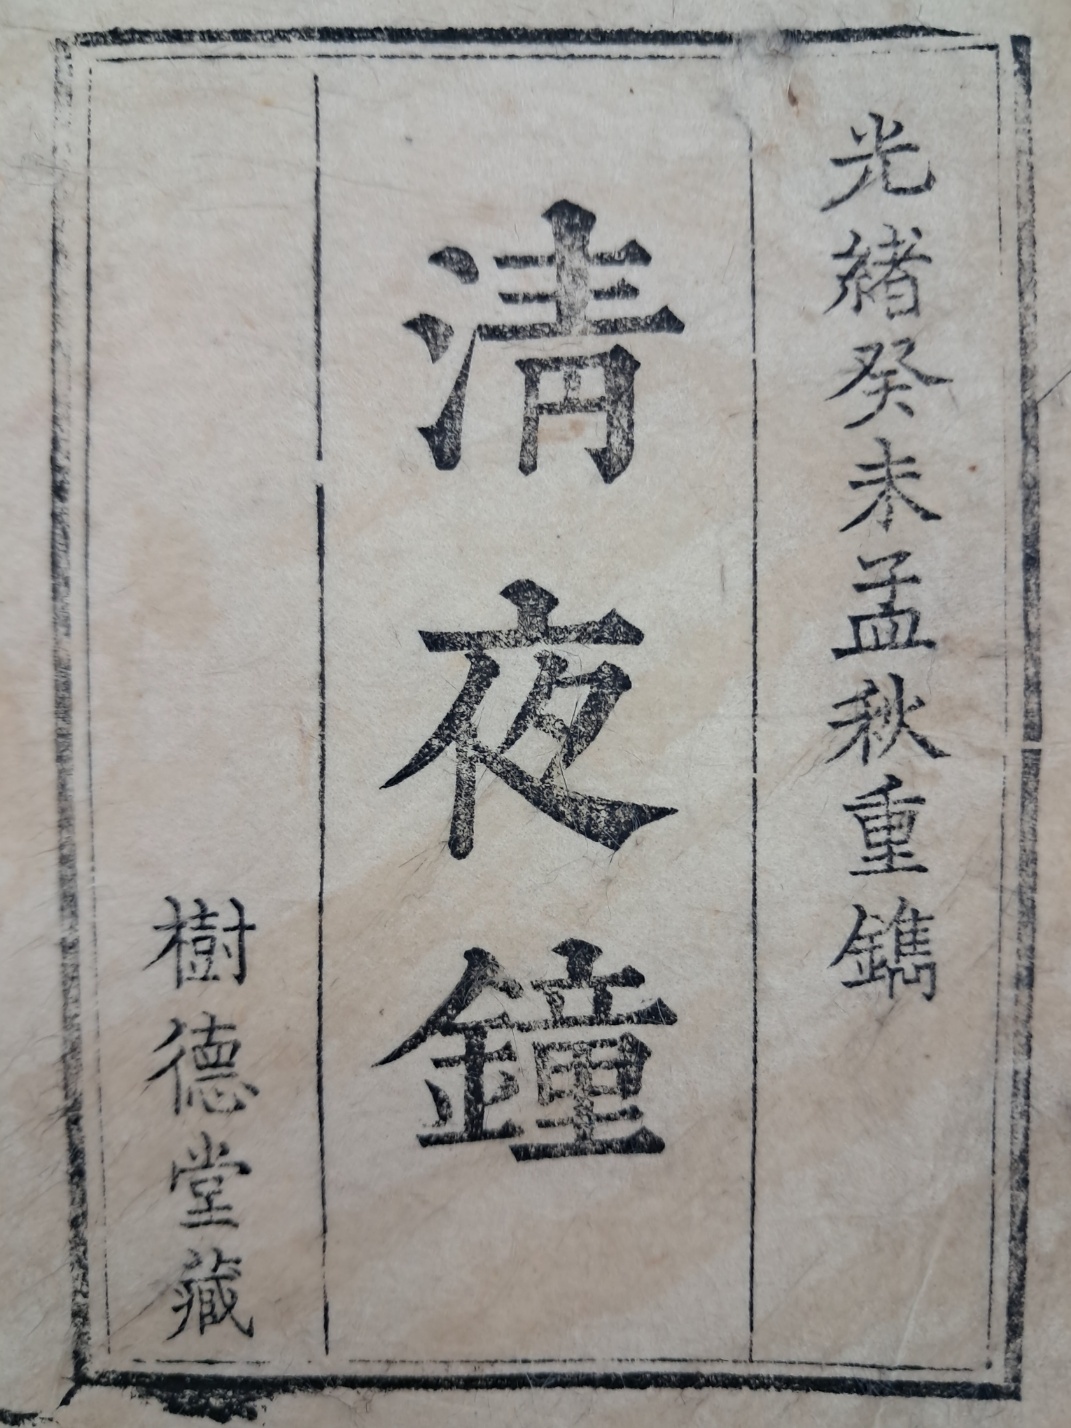 光緒癸未孟秋重鐫
清夜鐘
樹德堂藏